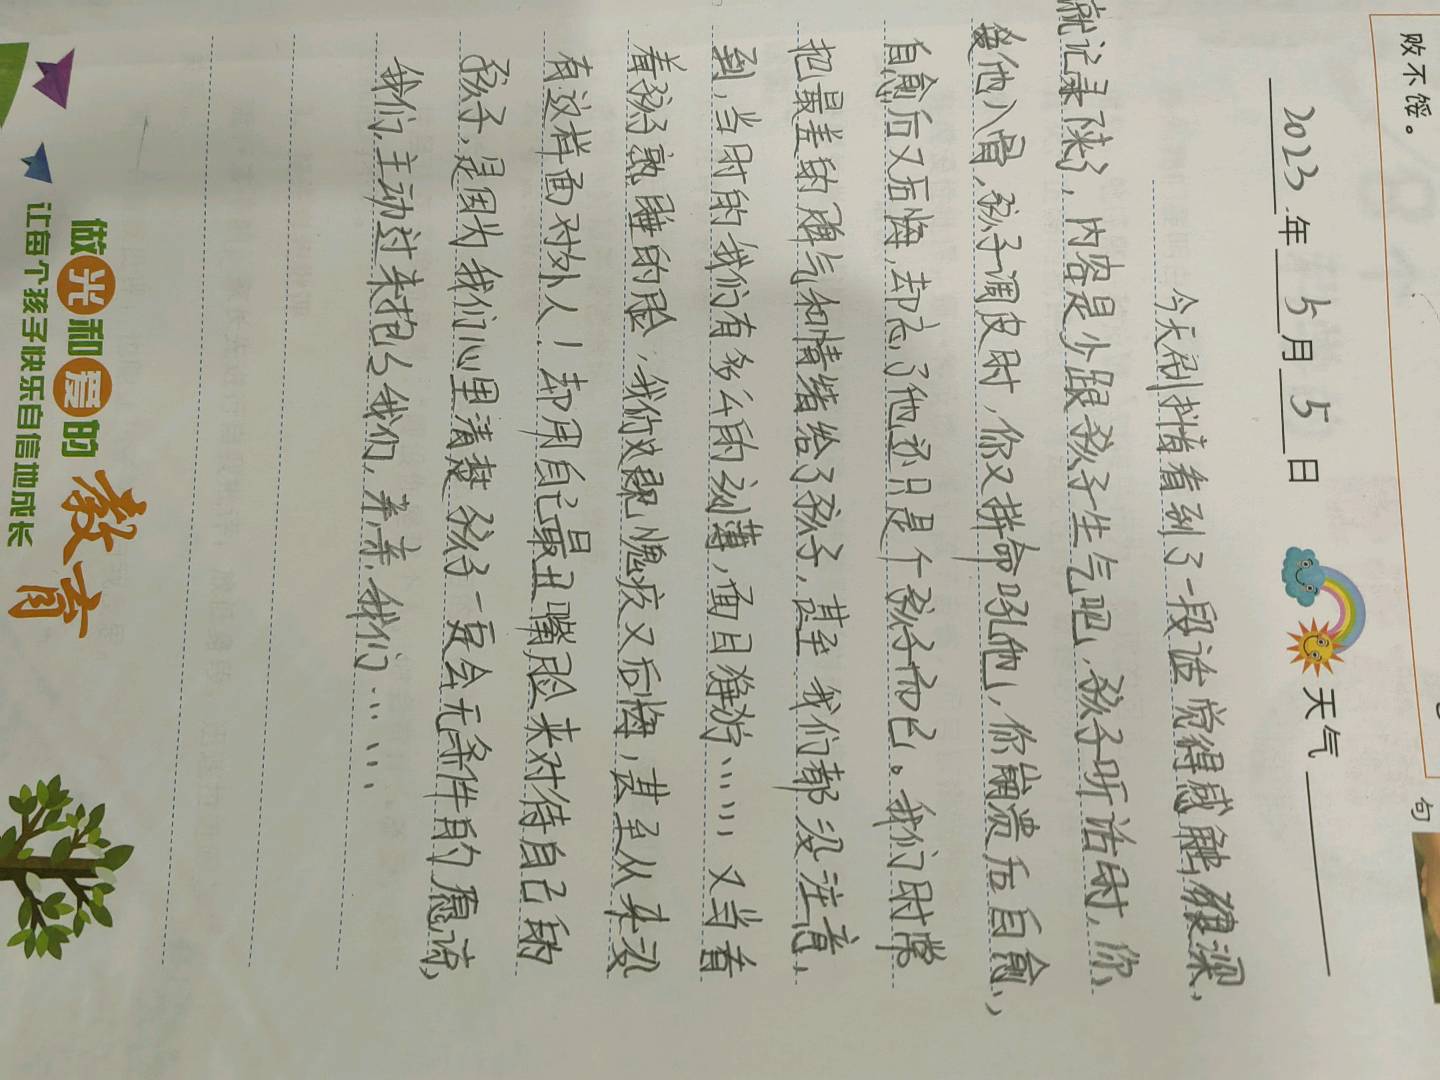 败不馁。
句
2023年5月5日 天气
今天刷抖音看到了一段话觉得感触狠深,
就记录下来了,内容是少跟孩子生气吧,孩子听话时,你
爱他入骨,孩子调皮时,你又拼命吼他,你崩溃后自愈,
自愈后又后悔,却忘了他还只是个孩子而已。我们时常
把最差的脾气和情绪给了孩子,甚至我们都没注意
到,当时的我们有多么的刻薄,面目狰狞……又当看
着孩子熟睡的脸,我们又愧疚又后悔,甚至从来没
有这样面对外人!却用自己最丑嘴脸来对待自己的
孩子,是因为我们心里清楚孩子一定会无条件的原谅,
我们,主动过来抱么我们,亲亲我们……
做光和爱的教育
让每个孩子快乐自信地成长